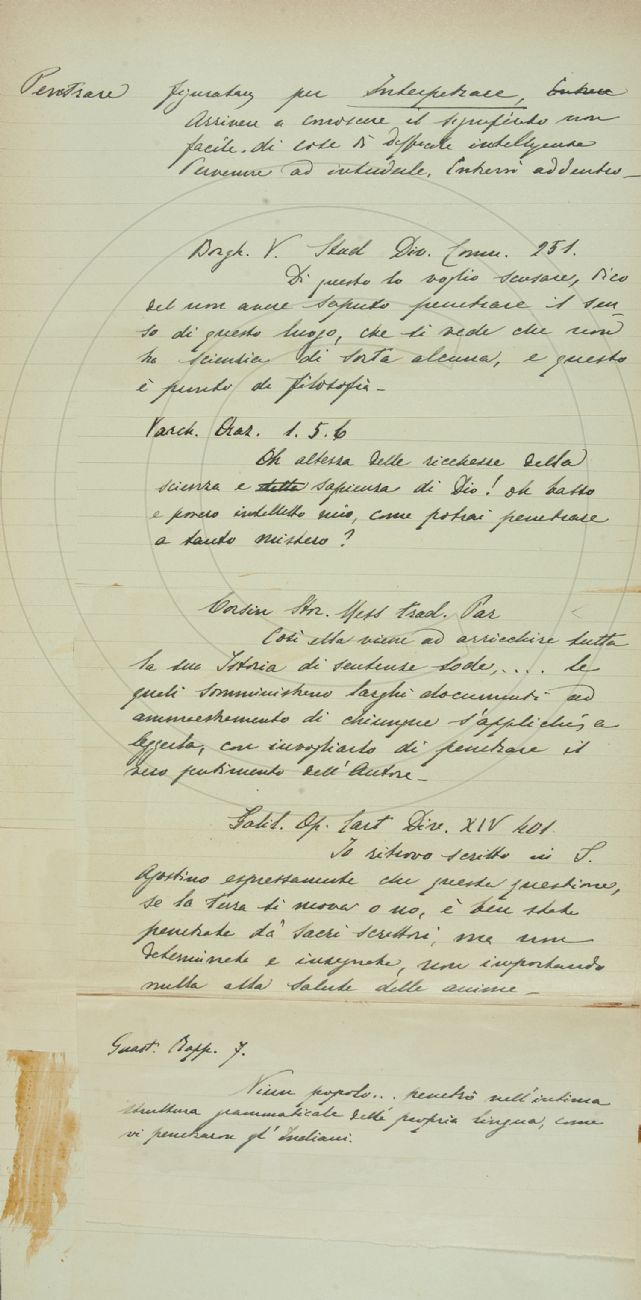 Penetrare figuratam per Interpetrare, Entrare
Arrivere a conoscere il significato non
facile. di cose di difficile intelligenza
Pervenire ad intenderle. Entrarvi addentro_
Borgh. V. Stud Div. Comm. 251.
Di questo lo voglio scusare, dico
del non avere saputo penetrare il sen-
so di questo luogo, che si vede che non
ha scienzia di sorta alcuna, e questo
è punto di filosofia_
Varch. Oraz. 1.5.6
Oh altezza delle ricchezze della
scienza e della sapienza di Dio! oh basso
e povero intelletto mio, come potrai penetrare
a tanto mistero?
Corsin Stor. Mess trad. Par
Così ella viene ad arricchire tutta
la sua Istoria di sentenze sode,.... le
quali somministrano larghi documenti ad
ammaestramento di chiunque s'applichi, a
leggerla, con invogliarlo di penetrare il
vero sentimento dell'Autore_
Galil. Op. Lett Dive. XIV 401
Io ritrovo scritto in S.
Agostino espressamente che questa questione,
se la terra si muova o no, è ben stata
penetrata da' sacri scrittori, ma non
determinata e insegnata, non importando
nulla alla salute delle anime_
Guast. Rapp. 7.
Niun popolo... penetrò nell'intima
struttura grammaticale della propria lingua, come
vi penetraron gl'Indiani.